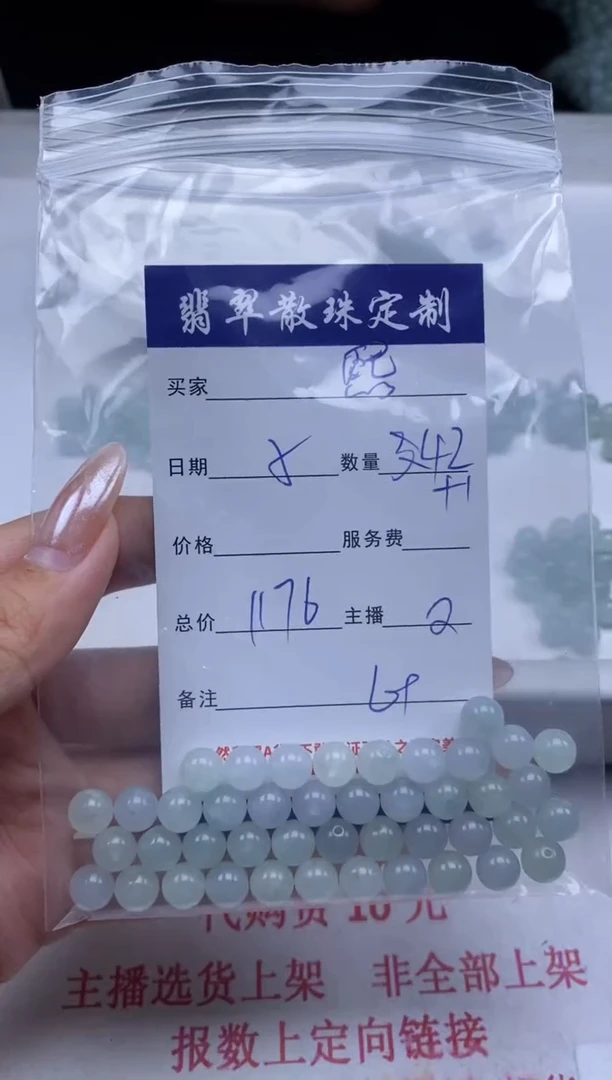 翡翠散珠定制
买家 熙
日期 8 数量 342
+1
价格 服务费
总价 1176 主播 2
备注
代购费 10 元
主播选货上架 非全部上架
报数上定向链接